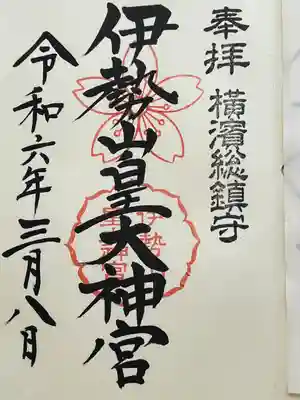 奉拝 横濱総鎮守
伊勢山皇大神宮
令和六年三月八日
伊勢山
皇大神宮